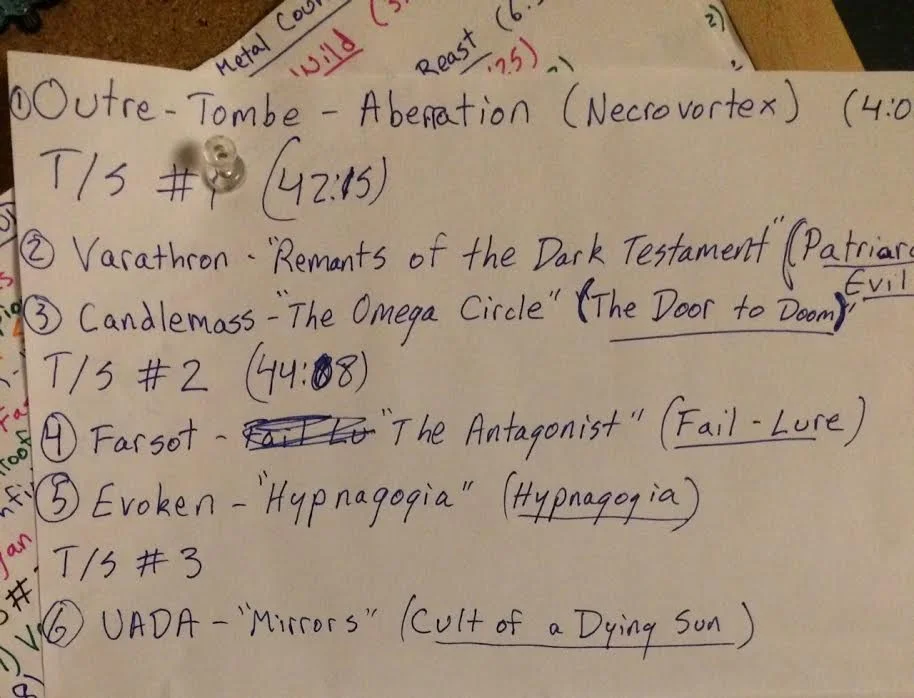 Metal Cou
Wild (3.
Beast (6.
:25)
2)
① Outre-Tombe - Aberration (Necrovortex) (4:0
T/S #1 (42:15)
② Varathron - "Remants of the Dark Testament" (Patriarc
Evil
③ Candlemass - "The Omega Circle" (The Door to Doom)"
T/S #2 (44:08)
④ Farsot - "The Antagonist" (Fail-Lure)
⑤ Evoken - "Hypnagogia" (Hypnagogia)
T/S #3
⑥ UADA - "Mirrors" (Cult of a Dying Sun)